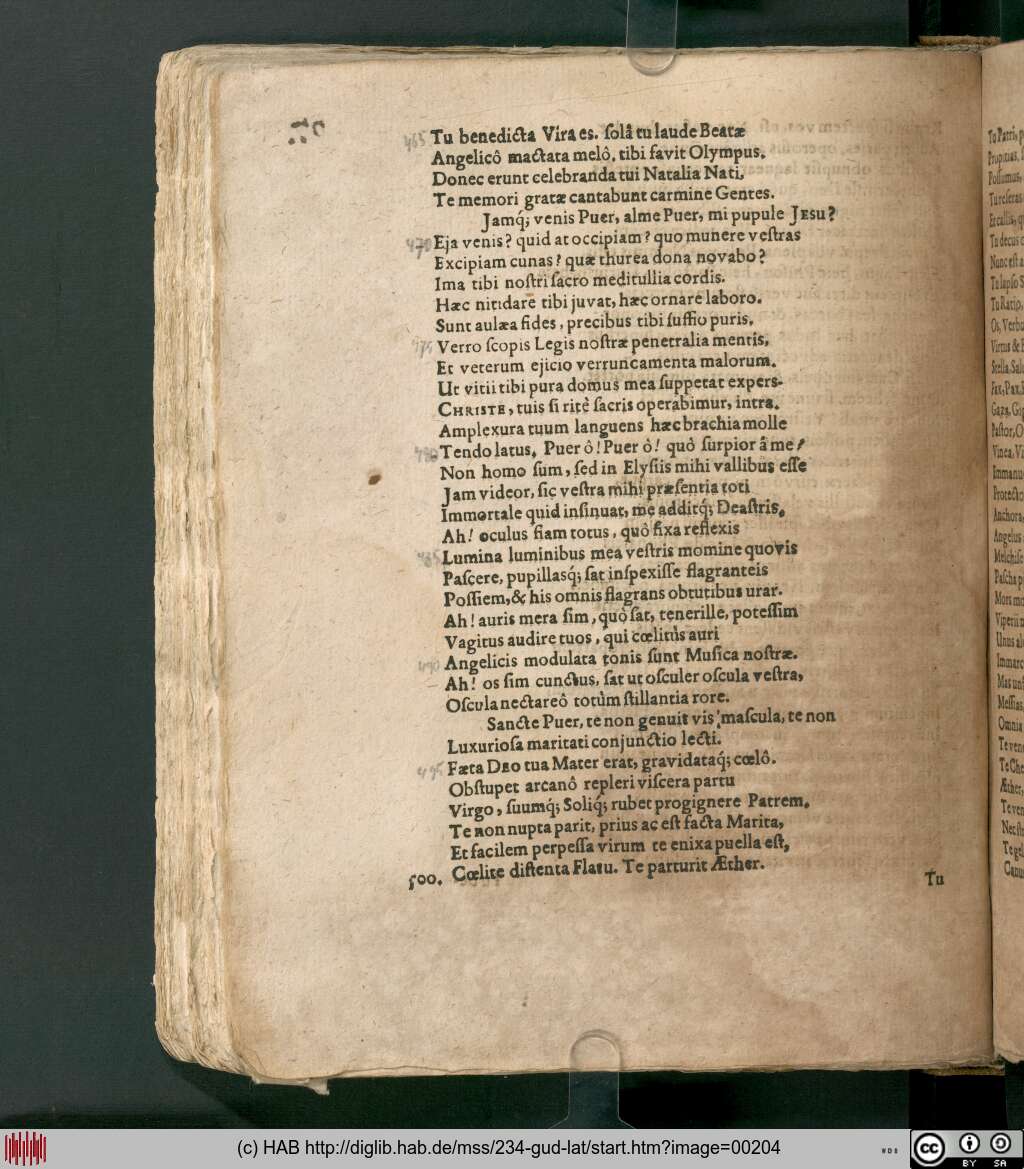 465 Tu benedicta Vira es. ſolâ tu laude Beatæ
Angelicô mactata melô, tibi favit Olympus.
Donec erunt celebranda tui Natalia Nati,
Te memori gratæ cantabunt carmine Gentes.
Jamq́; venis Puer, alme Puer, mi pupule JESU?
470 Eja venis? quid at occipiam? quo munere veſtras
Excipiam cunas? quæ thurea dona novabo?
Ima tibi noſtri ſacro meditullia cordis.
Hæc nitidare tibi juvat, hæc ornare laboro.
Sunt aulæa fides, precibus tibi ſuffio puris,
475 Verro ſcopis Legis noſtræ penetralia mentis,
Et veterum ejicio verruncamenta malorum.
Ut vitii tibi pura domus mea ſuppetat expers-
CHRISTE, tuis ſi ritè ſacris operabimur, intra.
Amplexura tuum languens hæc brachia molle
480 Tendo latus. Puer ô! Puer ô! quò ſurpior â me?
Non homo ſum, ſed in Elyſiis mihi vallibus eſſe
Jam videor, ſic veſtra mihi præſentia toti
Immortale quid inſinuat, me additq́; Deaſtris.
Ah! oculus fiam totus, quô fixa reflexis
485 Lumina luminibus mea veſtris momine quovis
Paſcere, pupillasq́; ſat inſpexiſſe flagranteis
Poſſiem, & his omnis flagrans obtutibus urar.
Ah! auris mera ſim, quò ſat, tenerille, poteſſim
Vagitus audire tuos, qui cœlitùs auri
490 Angelicis modulata tonis ſunt Muſica noſtræ.
Ah! os ſim cunctus, ſat ut oſculer oſcula veſtra,
Oſcula nectareô totùm ſtillantia rore.
Sancte Puer, te non genuit vis maſcula, te non
Luxurioſa maritati conjunctio lecti.
495 Fæta DEO tua Mater erat, gravidataq́; cœlô.
Obſtupet arcanô repleri viſcera partu
Virgo, ſuumq́; Soliq́; rubet progignere Patrem.
Te non nupta parit, prius ac eſt facta Marita,
Et facilem perpeſſa virum te enixa puella eſt,
500. Cœlite diſtenta Flatu. Te parturit Æther.
Tu
Tu Patri,
Tu decus
Nunc eſt
Tu Ratio,
Os, Verbu
Virtus & 
Stella, Sal
Fax, Pax,
Paſtor, O
Vinea, Vi
Immanu
Anchora,
Angelus
Melchiſe
Paſcha p
Unus al
Meſſias,
Omnia
Te ven
Te Che
Æther,
Te ven
(c) HAB http://diglib.hab.de/mss/234-gud-lat/start.htm?image=00204
WDB
cc
BY SA